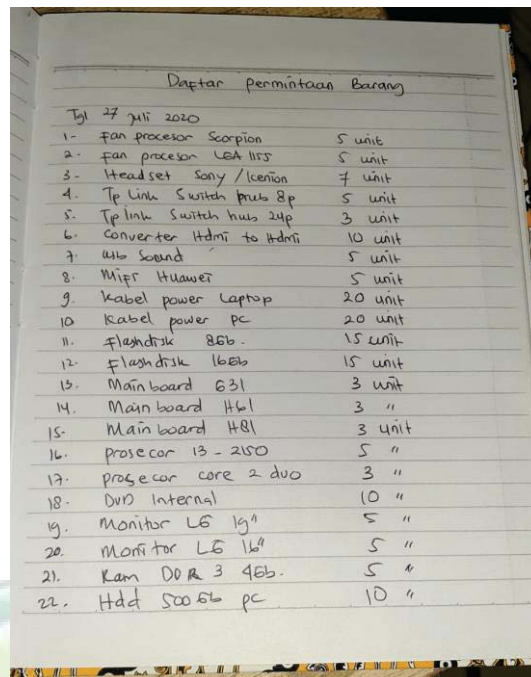 Daftar Permintaan Barang
Tgl 27 Juli 2020
1- Fan procesor Scorpion 5 unit
2. Fan procesor LGA 1155 5 unit
3- Headset Sony / Icenion 7 unit
4. Tp Link Switch hub 8p 5 unit
5. Tp link Switch hub 24p 3 unit
6. Converter Hdmi to Hdmi 10 unit
7. Usb Sound 5 unit
8. Mifi Huawei 5 unit
9. Kabel power Laptop 20 unit
10 Kabel power PC 20 unit
11. Flashdisk 8Gb. 15 unit
12. Flashdisk 16Gb 15 unit
13. Mainboard G31 3 unit
14. Mainboard H61 3 "
15- Mainboard H81 3 unit
16. prosecor 13-2150 5 "
17. prosecor core 2 duo 3 "
18. DVD Internal 10 "
19. Monitor LG 19" 5 "
20. Monitor LG 16" 5 "
21. Ram DDR 3 4Gb. 5 "
22. Hdd 500 Gb pc 10 "